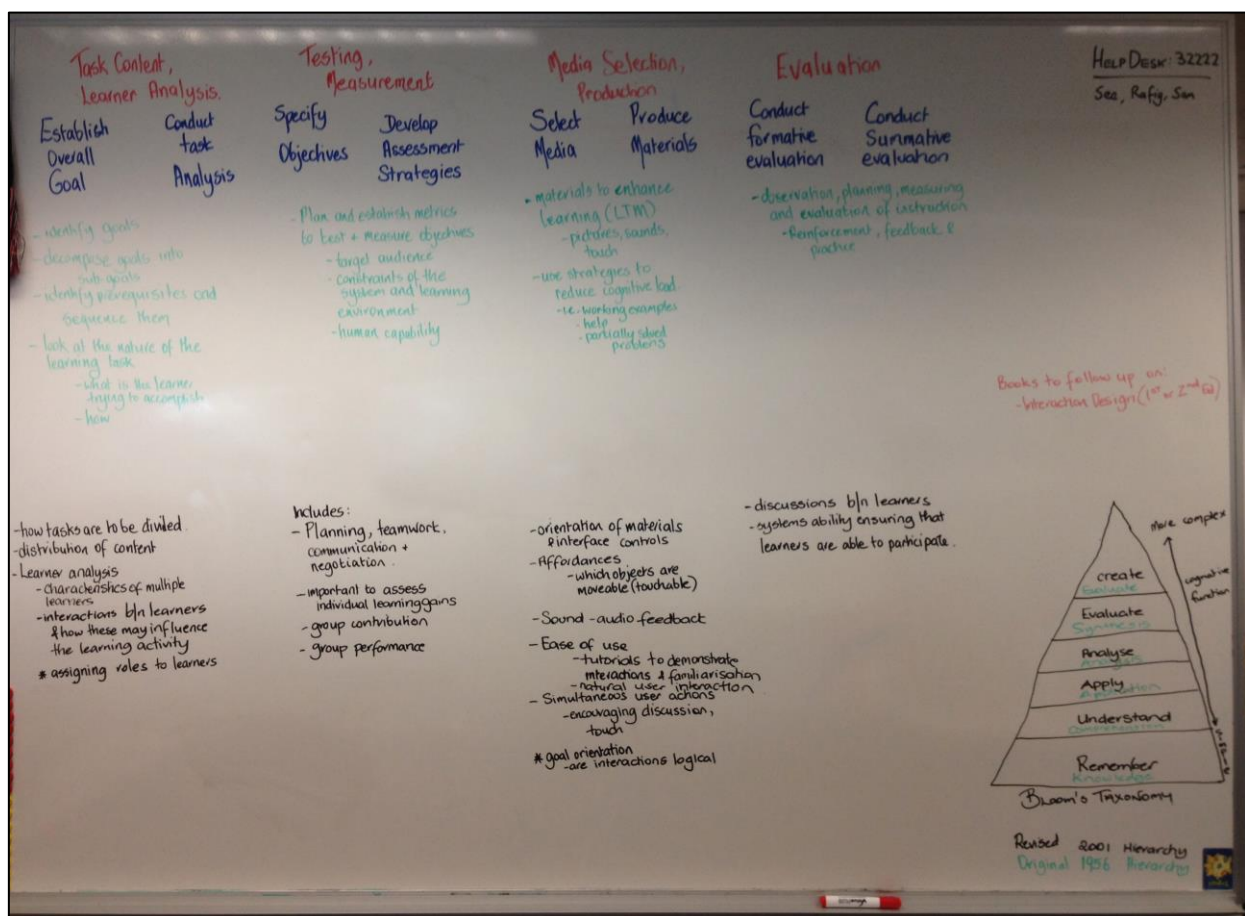 Task Content,
Learner Analysis.
Establish
Overall
Goal
Conduct
task
Analysis
- identify goals
- decompose goals into
sub goals
- identify prerequisites and
sequence them
- look at the nature of the
learning task
- what is the learner
trying to accomplish
- how
- how tasks are to be divided.
- distribution of content
- Learner analysis
- characteristics of multiple
learners
- interactions b/n learners
& how these may influence
the learning activity
* assigning roles to learners
Testing,
Measurement
Specify
Objectives
Develop
Assessment
Strategies
- Plan and establish metrics
to test + measure objectives
- target audience
- constraints of the
system and learning
environment
- human capability
Includes:
- Planning, teamwork,
communication +
negotiation.
- important to assess
individual learning gains
- group contribution
- group performance
Media Selection,
Production
Select
Media
Produce
Materials
- materials to enhance
learning (LTM)
- pictures, sounds,
touch
- use strategies to
reduce cognitive load
- ie. working examples
- help
- partially solved
problems
- orientation of materials
& interface controls
- Affordances
- which objects are
moveable (touchable)
- Sound - audio feedback
- Ease of use
- tutorials to demonstrate
interactions & familiarisation
- natural user interaction
- Simultaneous user actions
- encouraging discussion,
touch
* goal orientation
- are interactions logical
Evaluation
Conduct
formative
evaluation
Conduct
Summative
evaluation
- observation, planning, measuring
and evaluation of instruction
- Reinforcement, feedback &
practice
- discussions b/n learners
- systems ability ensuring that
learners are able to participate.
HELP DESK: 32222
Rafig, San
Books to follow up on:
- Interaction Design (1st or 2nd Ed)
more complex
cognitive
function
create
Evaluate
Evaluate
Synthesis
Analyse
Analysis
Apply
Application
Understand
Comprehension
Remember
Knowledge
Bloom's Taxonomy
Revised 2001 Hierarchy
Original 1956 Hierarchy